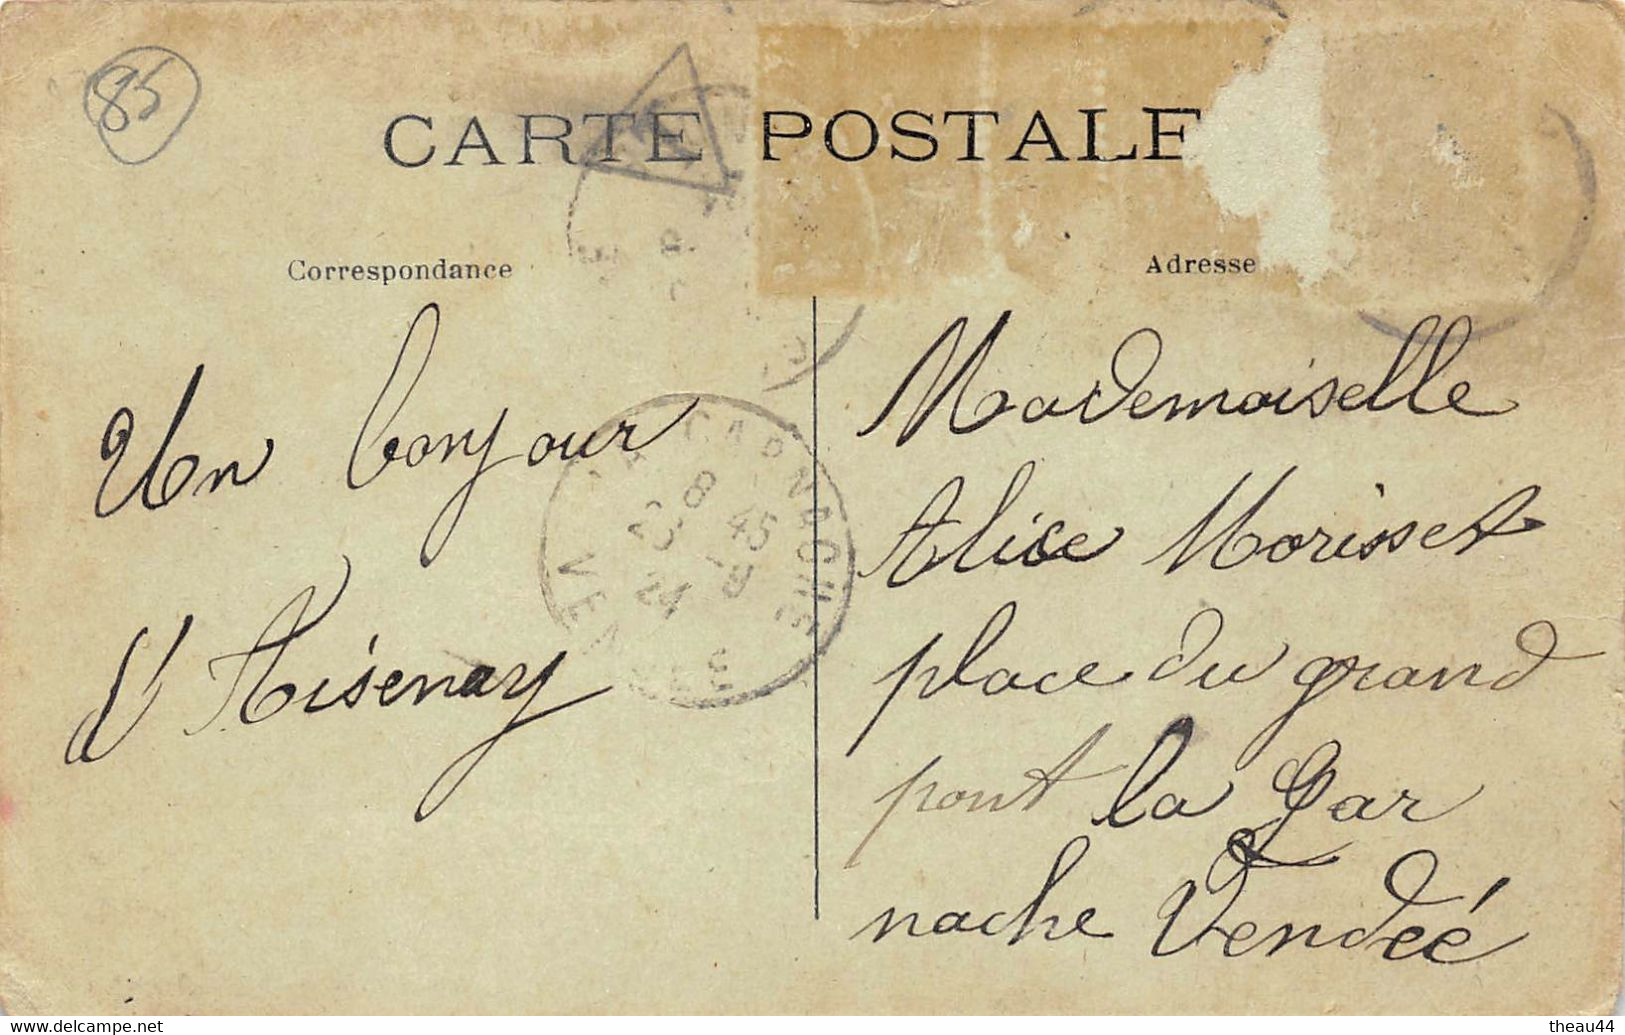 85
CARTE POSTALE
Correspondance
Adresse
Un bonjour
d'Aisenay
Mademoiselle
Alice Morisset
place du grand
pont la Gar
nache Vendéé
LA GARNACHE
8 45
VENDEE
www.delcampe.net
theau44